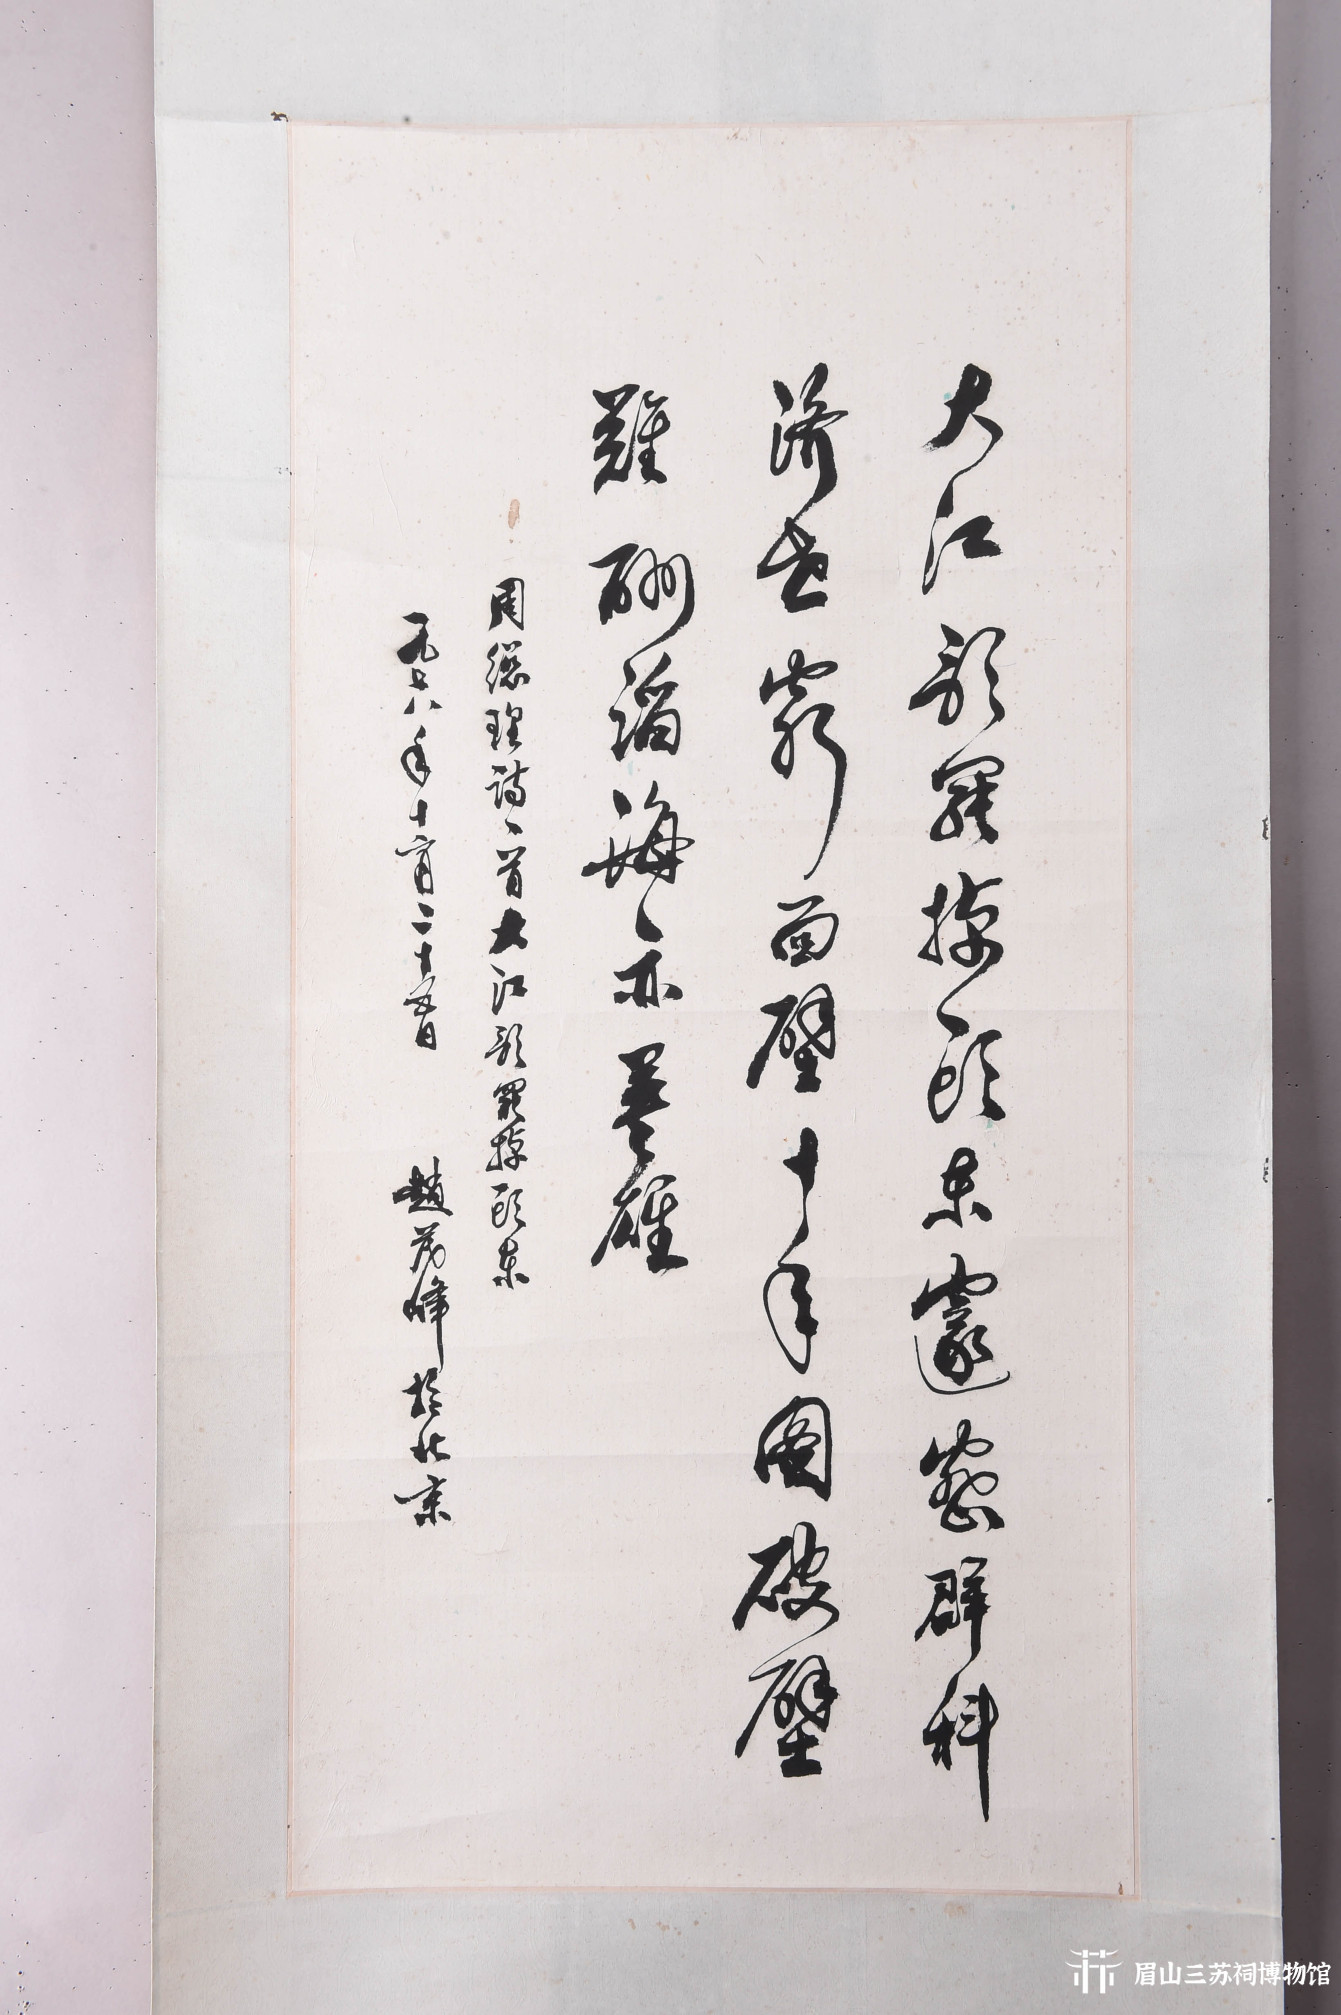 大江歌罷掉頭東邃密群科
濟世窮面壁十年圖破壁
難酬蹈海亦英雄
周總理詩一首大江歌罷掉頭東
一九七八年十一月二十五日 趙茂峰於北京
眉山三苏祠博物馆